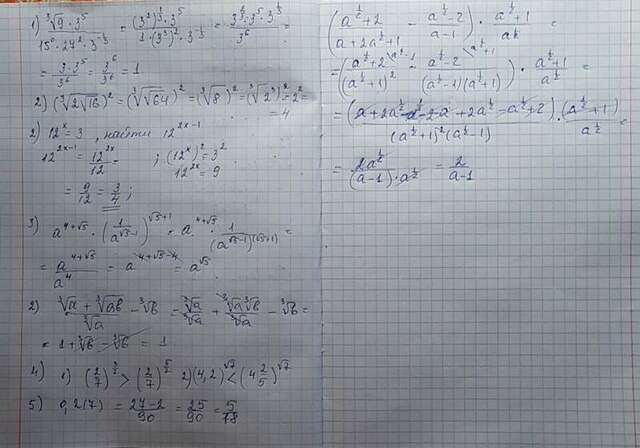 1) ∛9 · 3⁵ / 15⁰ · 27² · 3^(-1/3) = (3²)^(1/3) · 3⁵ / 1 · (3³)² · 3^(-1/3) = 3^(2/3) · 3⁵ · 3^(1/3) / 3⁶ =
= 3 · 3⁵ / 3⁶ = 3⁶ / 3⁶ = 1
2) (∛2√16)² = (∛√64)² = (∛8)² = (∛2³)² = 2² =
= 4
2) 12^x = 3 , найти 12^(2x-1)
12^(2x-1) = 12^(2x) / 12 = ; (12^x)² = 3²
12^(2x) = 9
= 9/12 = 3/4 ;
3) a^(4+√5) · (1 / a^(√5-1))^(√5+1) = a^(4+√5) · 1 / (a^(√5-1)(√5+1)) =
= a^(4+√5) / a⁴ = a^(4+√5-4) = a^√5
2) ∛a + ∛ab / ∛a - ∛b = ∛a / ∛a + ∛a ∛b / ∛a - ∛b =
= 1 + ∛b - ∛b = 1
4) 1) (2/7)^(3/2) > (2/7)^(5/2) 2) (4,2)^√7 < (4 2/5)^√7
5) 0,2(7) = 27-2 / 90 = 25/90 = 5/18
(a^(1/2)+2 / a+2a^(1/2)+1 - a^(1/2)-2 / a-1) · a^(1/2)+1 / a^(1/2) =
= (a^(1/2)+2 \a^(1/2)-1 / (a^(1/2)+1)² - a^(1/2)-2 \a^(1/2)+1 / (a^(1/2)-1)(a^(1/2)+1)) · a^(1/2)+1 / a^(1/2) =
= (a+2a^(1/2)-a^(1/2)-2-a+2a^(1/2)-a^(1/2)+2) · (a^(1/2)+1) / (a^(1/2)+1)²(a^(1/2)-1) a^(1/2) =
= 2a^(1/2) / (a-1) · a^(1/2) = 2 / a-1